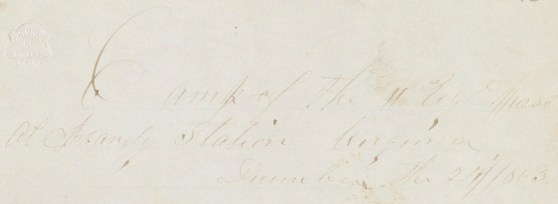 Camp of the 11 Reg Mass
At Brandy Station Virginia
December the 29/1863